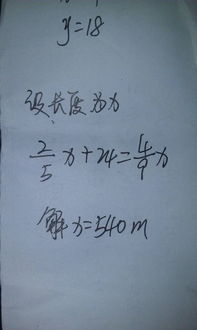 y=18
设长度为x
2/5 x+24=4/9 x
解x=540m